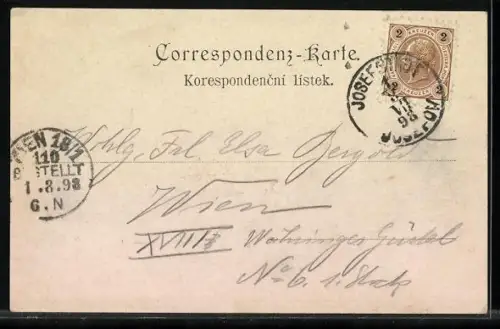 2 2
Correspondenz-Karte.
Korespondenční lístek.
JOSEFSTADT
VII
98
JOSEFOV
WIEN 18/1
110
BESTELLT
1.8.98
6.N
Wohlg. Frl. Elsa
Wien
XVIII/1 Währinger Gürtel
No 6. 1. Stock